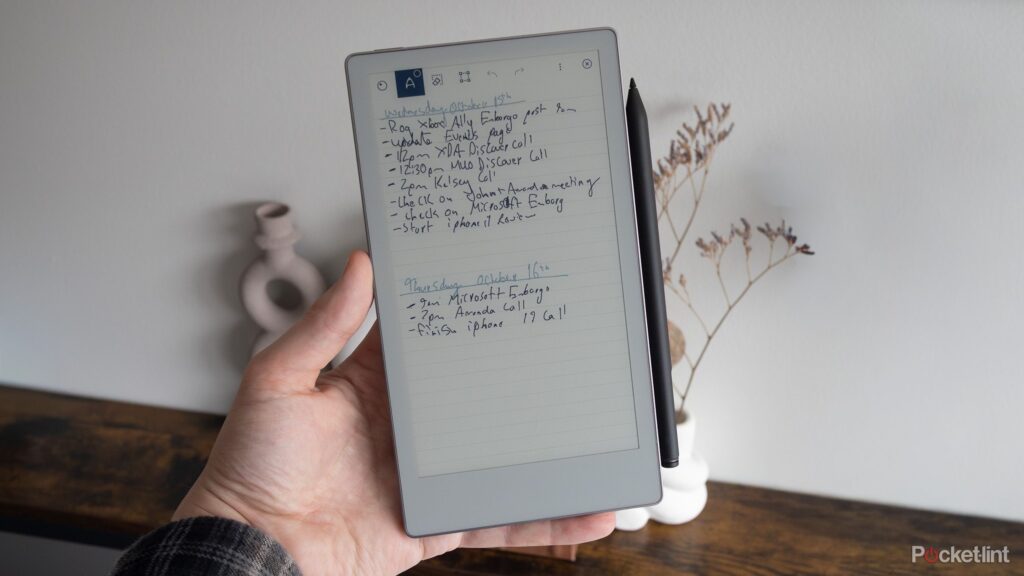 A
Wednesday October 15th
- Rog Xbox Ally Embargo post 9am
- update Events page
- 12pm XDA Discover call
- 12:30pm MUO Discover Call
- 2pm Kelsey Call
- Check on Award meeting
- Check on Microsoft Embarg
- Start iphone 17
Thursday October 16th
- 9am Microsoft Embargo
- 2pm Amanda Call
- Finish iphone 17 Call
Pocketlint